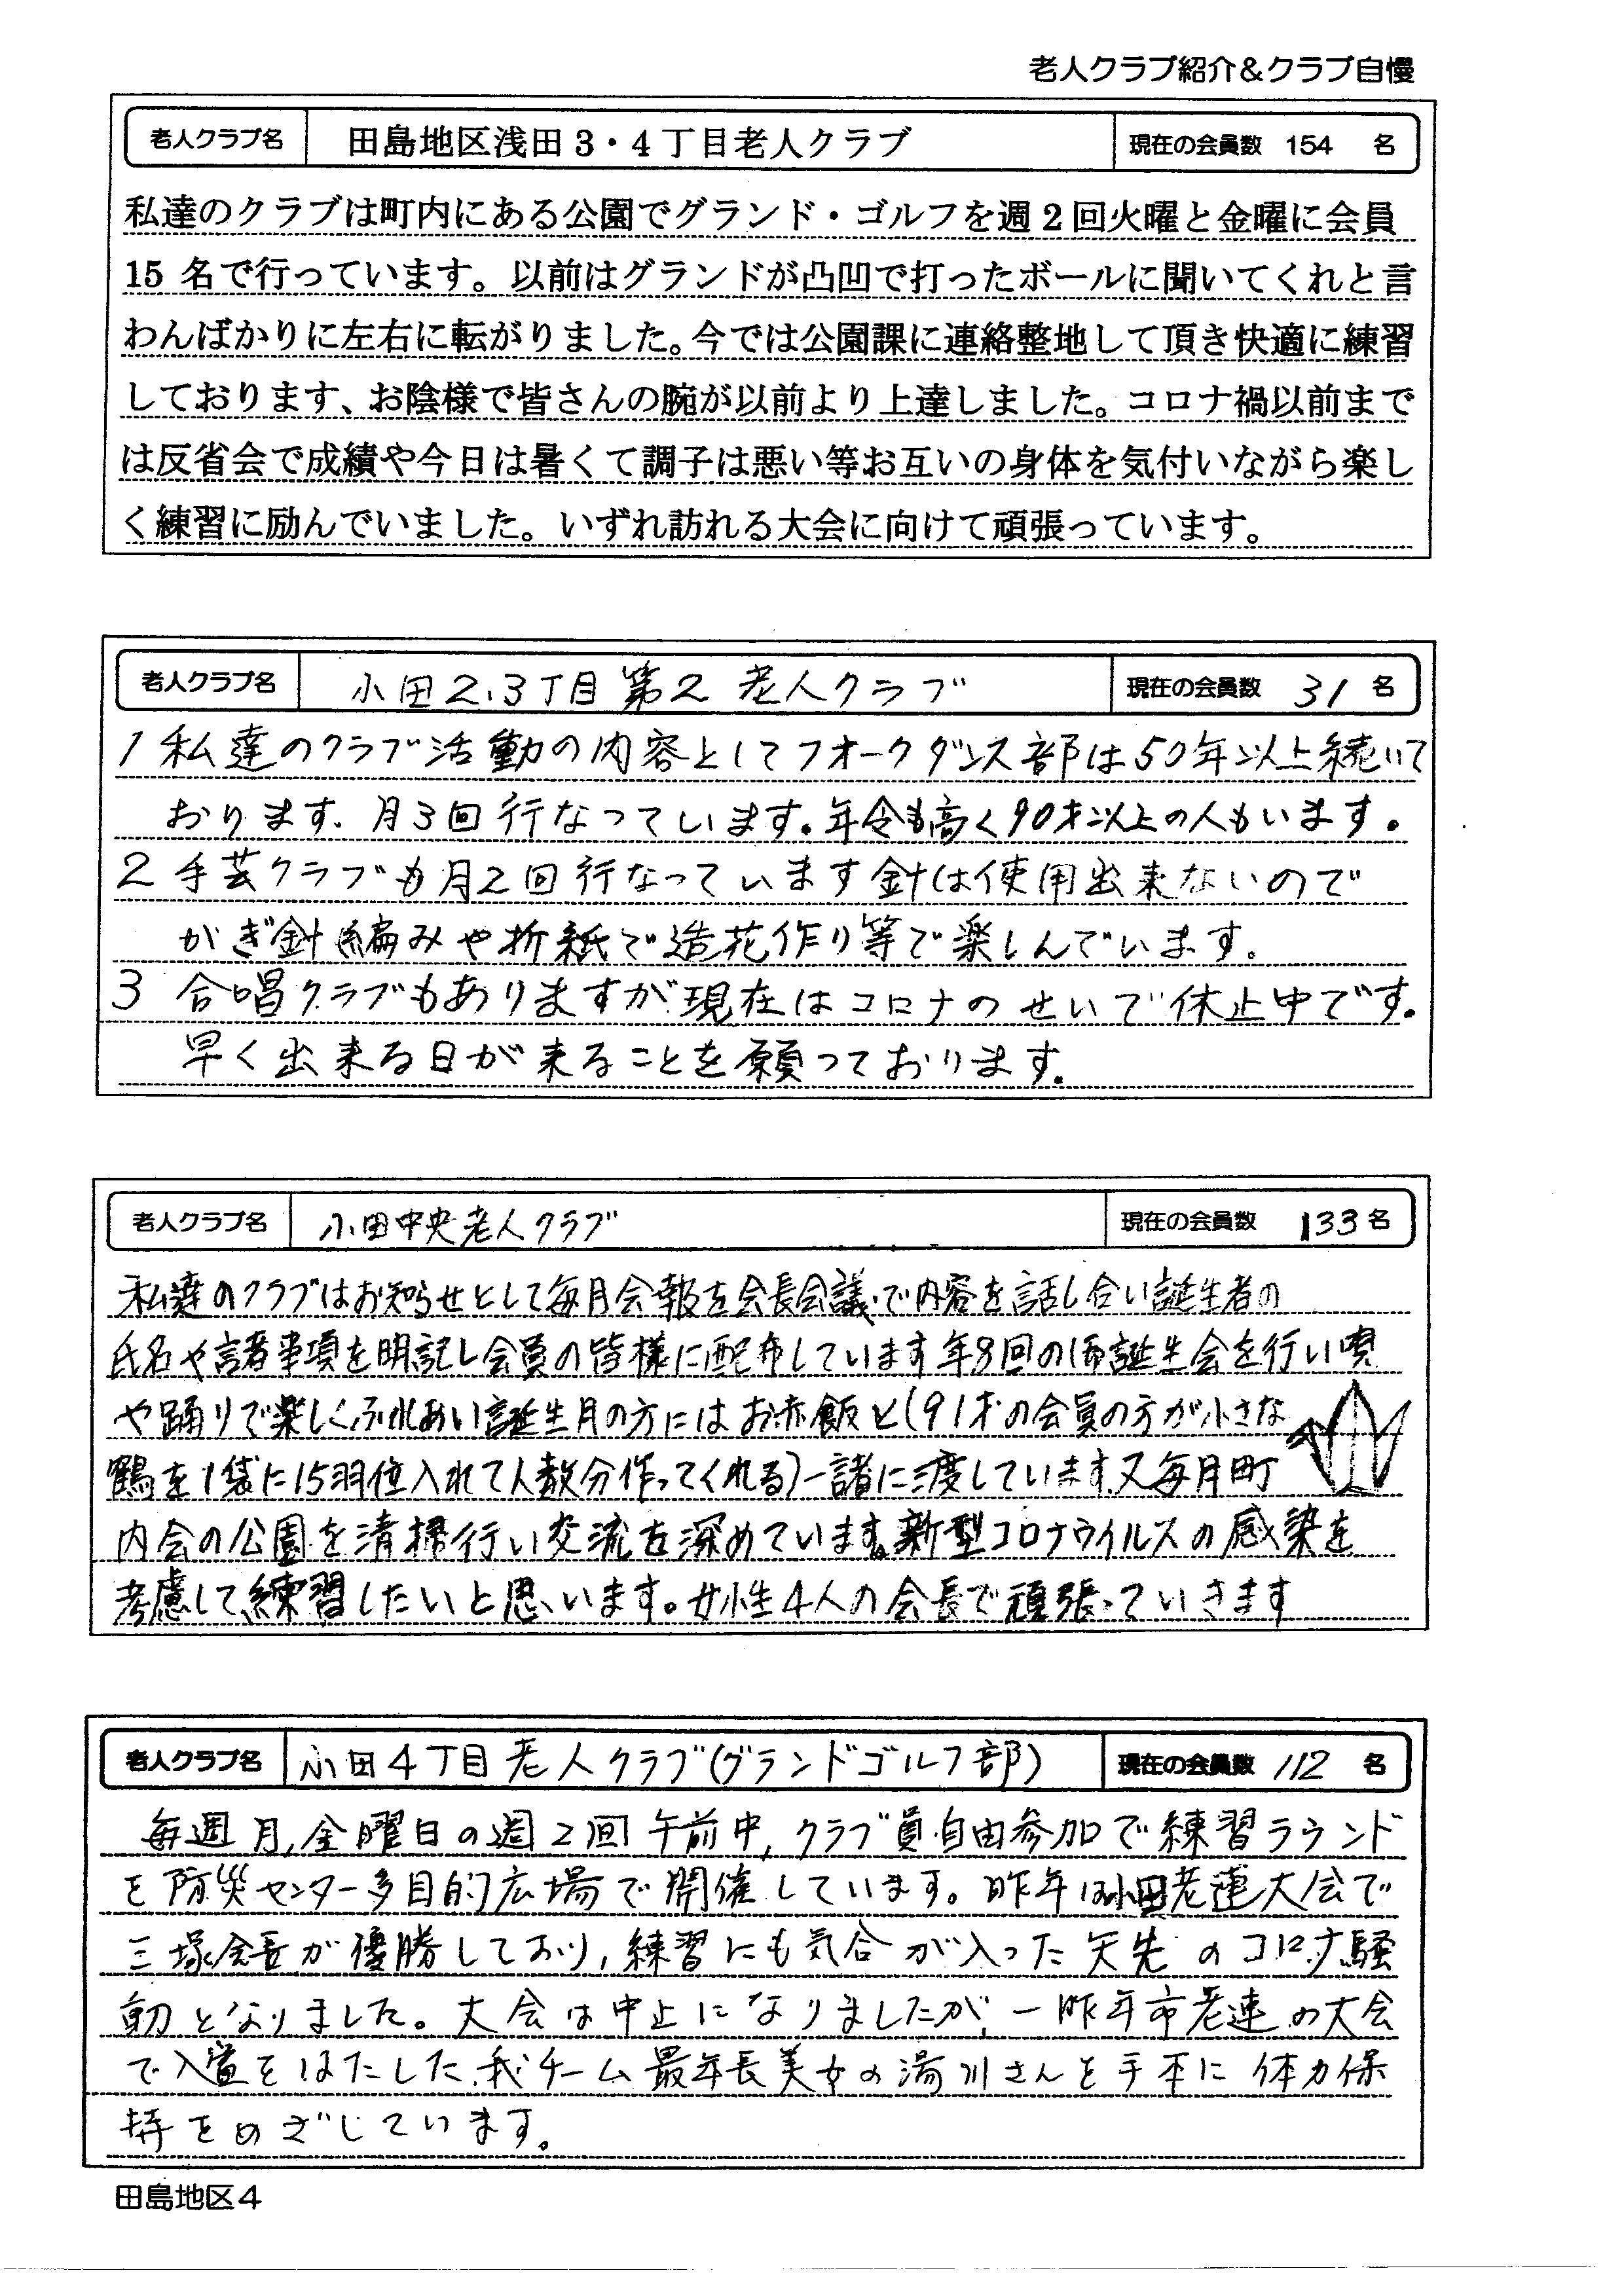 老人クラブ紹介&クラブ自慢
老人クラブ名 田島地区浅田3・4丁目老人クラブ 現在の会員数 154 名
私達のクラブは町内にある公園でグランド・ゴルフを週2回火曜と金曜に会員
15名で行っています。以前はグランドが凸凹で打ったボールに聞いてくれと言
わんばかりに左右に転がりました。今では公園課に連絡整地して頂き快適に練習
しております、お陰様で皆さんの腕が以前より上達しました。コロナ禍以前まで
は反省会で成績や今日は暑くて調子は悪い等お互いの身体を気付いながら楽し
く練習に励んでいました。いずれ訪れる大会に向けて頑張っています。
老人クラブ名 小田2.3丁目第2 老人クラブ 現在の会員数 31 名
1 私達のクラブ活動の内容としてフォークダンス部は50年以上続いて
おります、月3回行なっています。年令も高く90才以上の人もいます。
2 手芸クラブも月2回行なっています針は使用出来ないので
かぎ針編みや折紙で造花作り等で楽しんでいます。
3 合唱クラブもありますが現在はコロナのせいで休止中です。
早く出来る日が来ることを願っております。
老人クラブ名 小田中央老人クラブ 現在の会員数 133名
私達のクラブはお知らせとして毎月会報を会長会議で内容を話し合い誕生者の
氏名や諸事項を明記し会員の皆様に配布しています年8回の誕生会を行い唄
や踊りで楽しくふれあい誕生月の方にはお赤飯と(91才の会員の方が小さな
鶴を1袋に15羽位入れて人数分作ってくれる)一諸に渡しています.又毎月町
内会の公園を清掃行い交流を深めています。新型コロナウイルスの感染を
考慮して練習したいと思います。女性4人の会長で頑張っていきます
老人クラブ名 小田4丁目老人クラブ(グランドゴルフ部) 現在の会員数 112 名
毎週月,金曜日の週2回午前中,クラブ員自由参加で練習ラウンド
を防災センター多目的広場で開催しています。昨年は小田老連大会で
三塚会長が優勝しており,練習にも気合が入った矢先のコロナ騒
動となりました。大会は中止になりましたが,一昨年市老連の大会
で入賞をはたした.我チーム最年長美女の湯川さんを手本に体力保
持をめざしています。
田島地区4